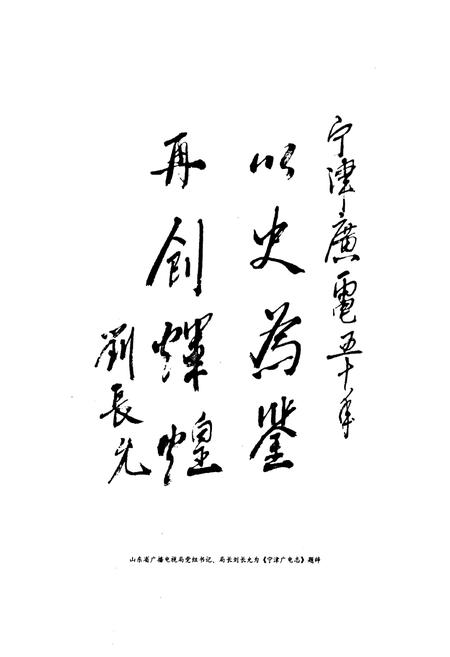 宁津廣電五十年
以史为鉴
再創輝煌
劉長允
山东省广播电视局党组书记、局长刘长允为《宁津广电志》题辞